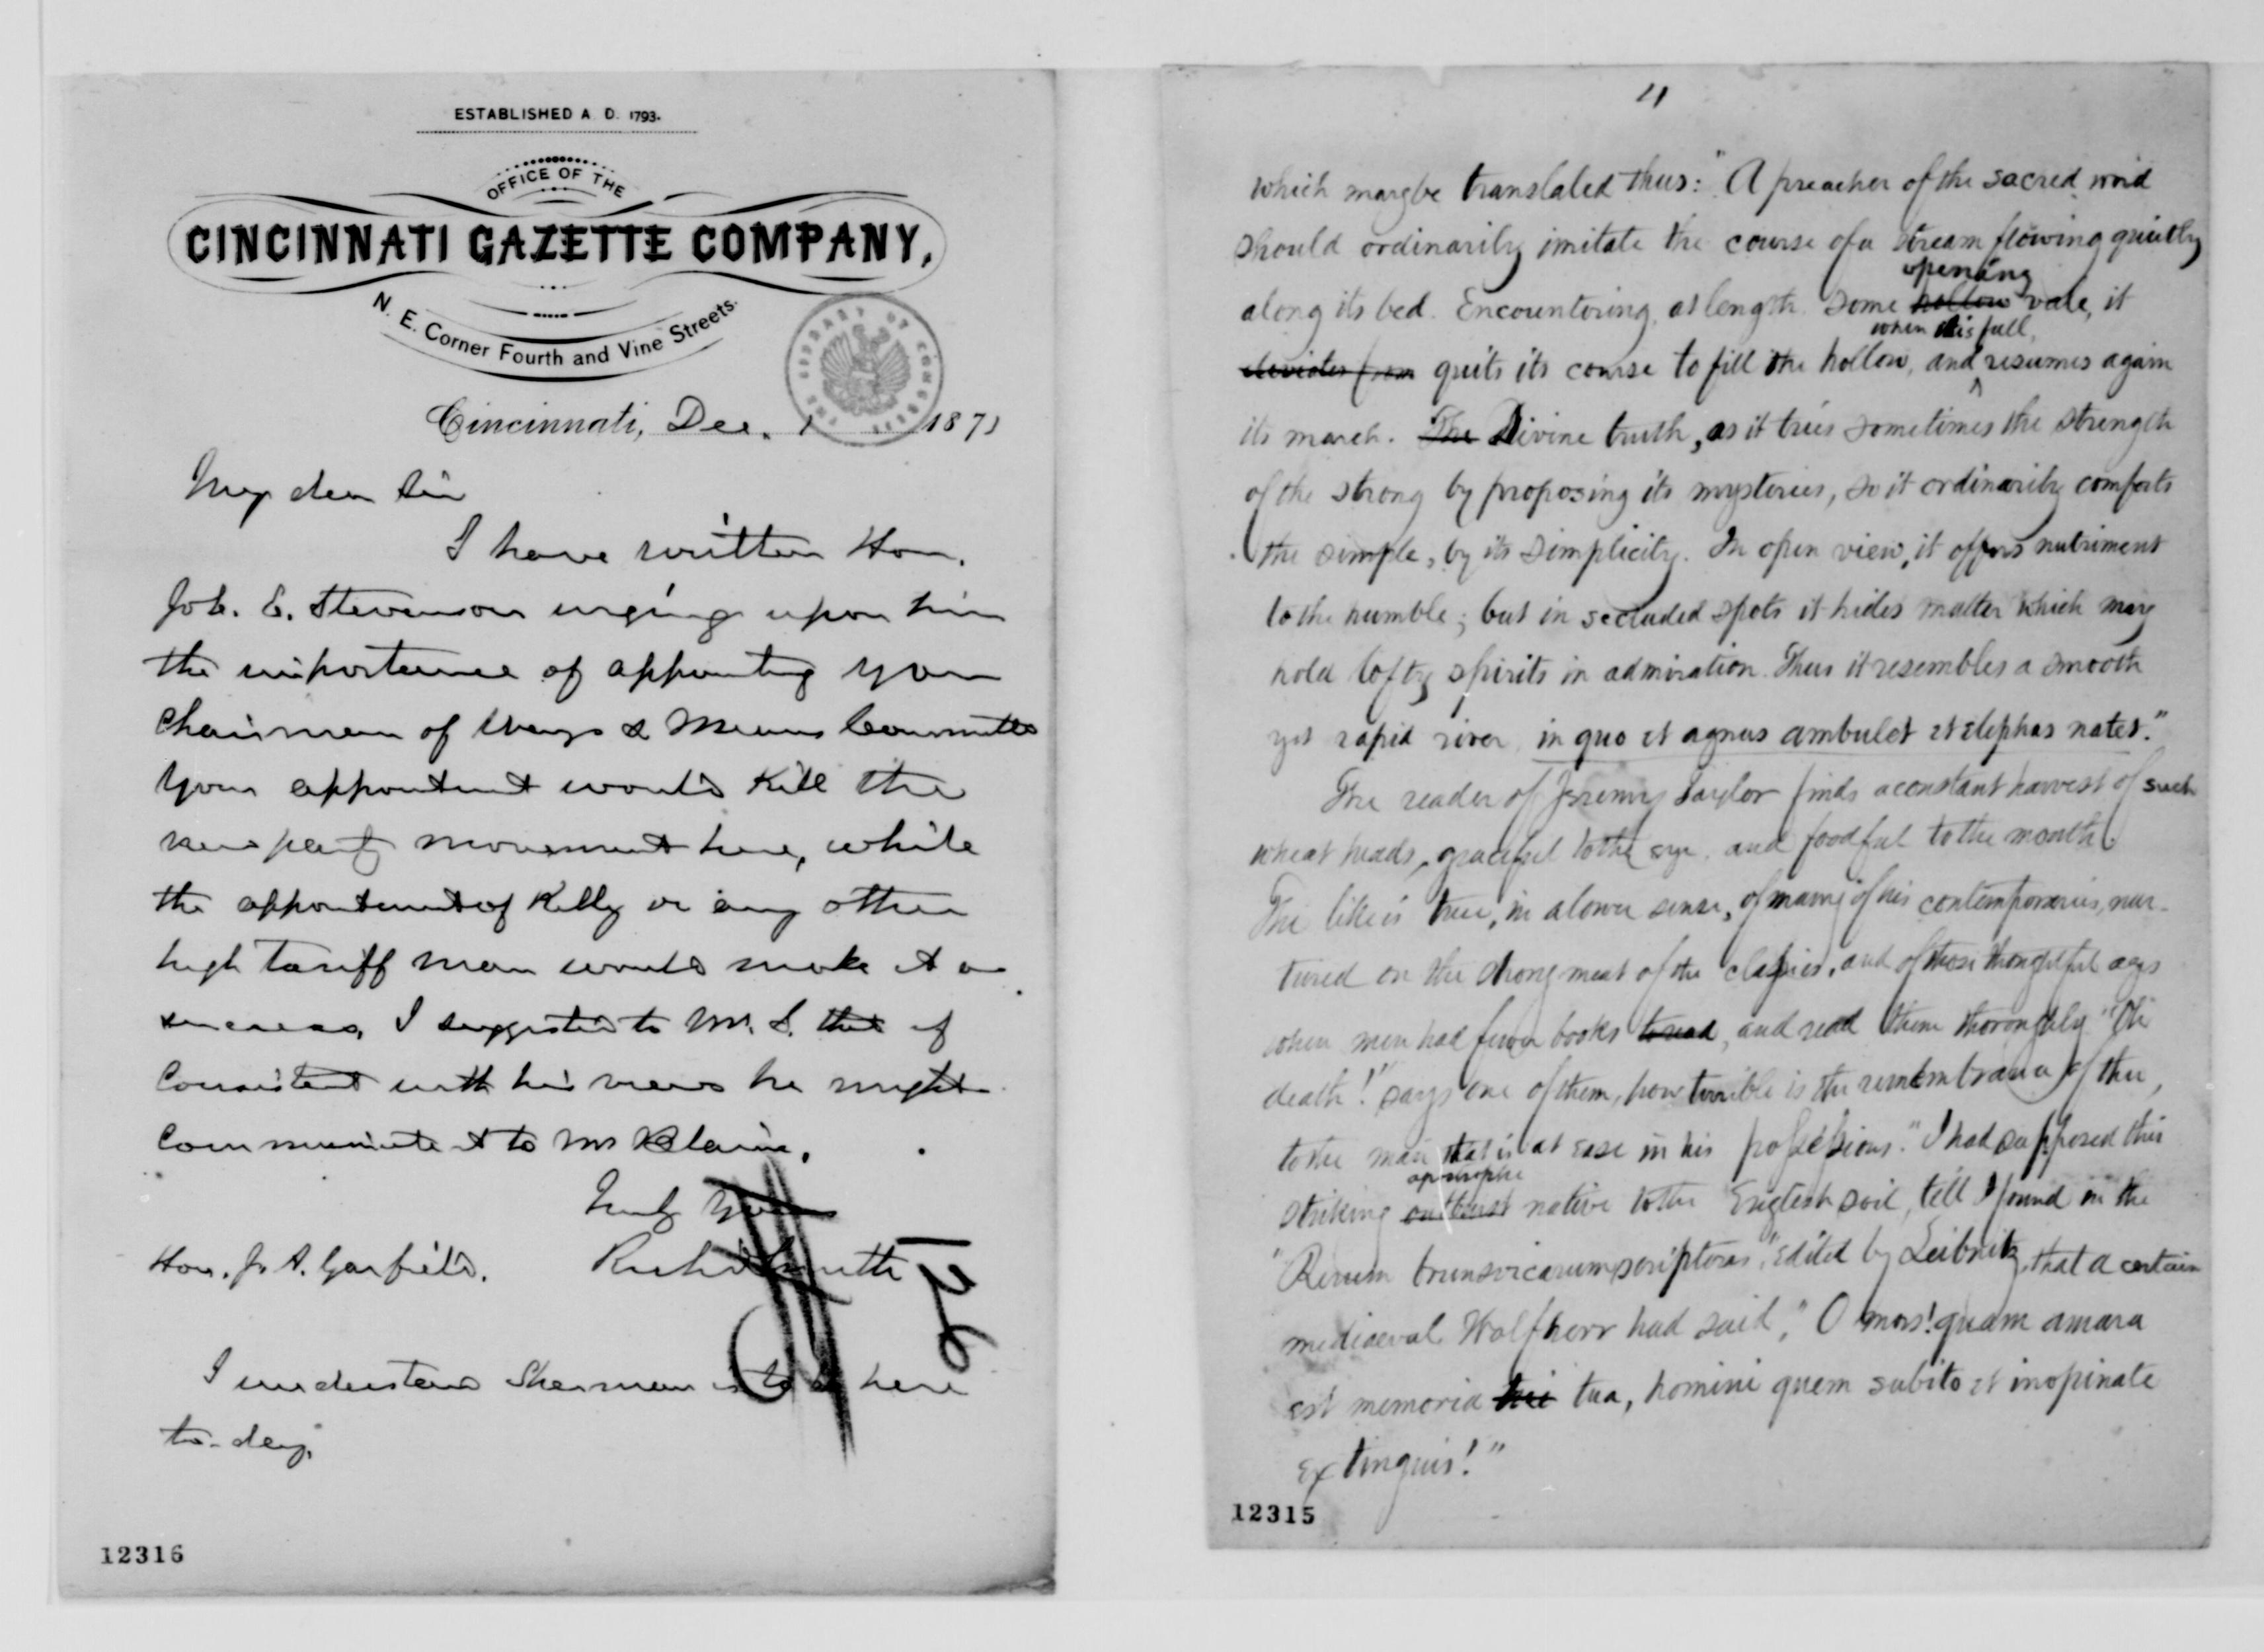 ESTABLISHED A. D. 1793.
OFFICE OF THE
CINCINNATI GAZETTE COMPANY,
N. E. Corner Fourth and Vine Streets.
THE LIBRARY OF CONGRESS
Cincinnati, Dec. 1 1871
My dear Sir
I have written Hon.
Job. E. Stevenson urging upon him
the importance of appointing you
Chairman of Ways & Means Committee
Your appointment would kill the
new party movement here, while
the appointment of Kelly or any other
high tariff man would make it a
success, I suggested to Mr. S. that if
Consistent with his views he might
communicate it to Mr Blaine.
Truly Yours
Hon. J. A. Garfield. Richd Smith
126
I understand Sherman is to be here
to-day.
12316
4
which may be translated thus: "A preacher of the sacred word
should ordinarily imitate the course of a stream flowing quietly
opening
along its bed. Encountering, at length some hollow vale, it
when this full,
deviates from quits its course to fill the hollow, and resumes again
its march. The Divine truth, as it tries sometimes the strength
of the strong by proposing its mysteries, so it ordinarily comforts
the simple, by its simplicity. In open view, it offers nutriment
to the humble; but in secluded spots it hides matter which may
hold lofty spirits in admiration. Thus it resembles a smooth
yet rapid river in quo et agnus ambulet et elephas natet."
The reader of Jeremy Taylor finds a constant harvest of such
wheat heads, graceful to the eye and foodful to the mouth.
The like is true, in a lower sense, of many of his contemporaries, nur-
tured on the strong meat of the classics, and of those thoughtful ages
when men had fewer books to read, and read them thoroughly. "Oh
death!" says one of them, how terrible is the remembrance of thee,
to the man that is at ease in his possessions." I had supposed this
apostrophe
striking outburst native to the English soil, till I found in the
"Rerum brunsvicarum scriptores," edited by Leibnitz, that a certain
mediaeval Wolfherr had said, "O mors! quam amara
est memoria tui tua, homini quem subito et inopinate
extinguis!"
12315